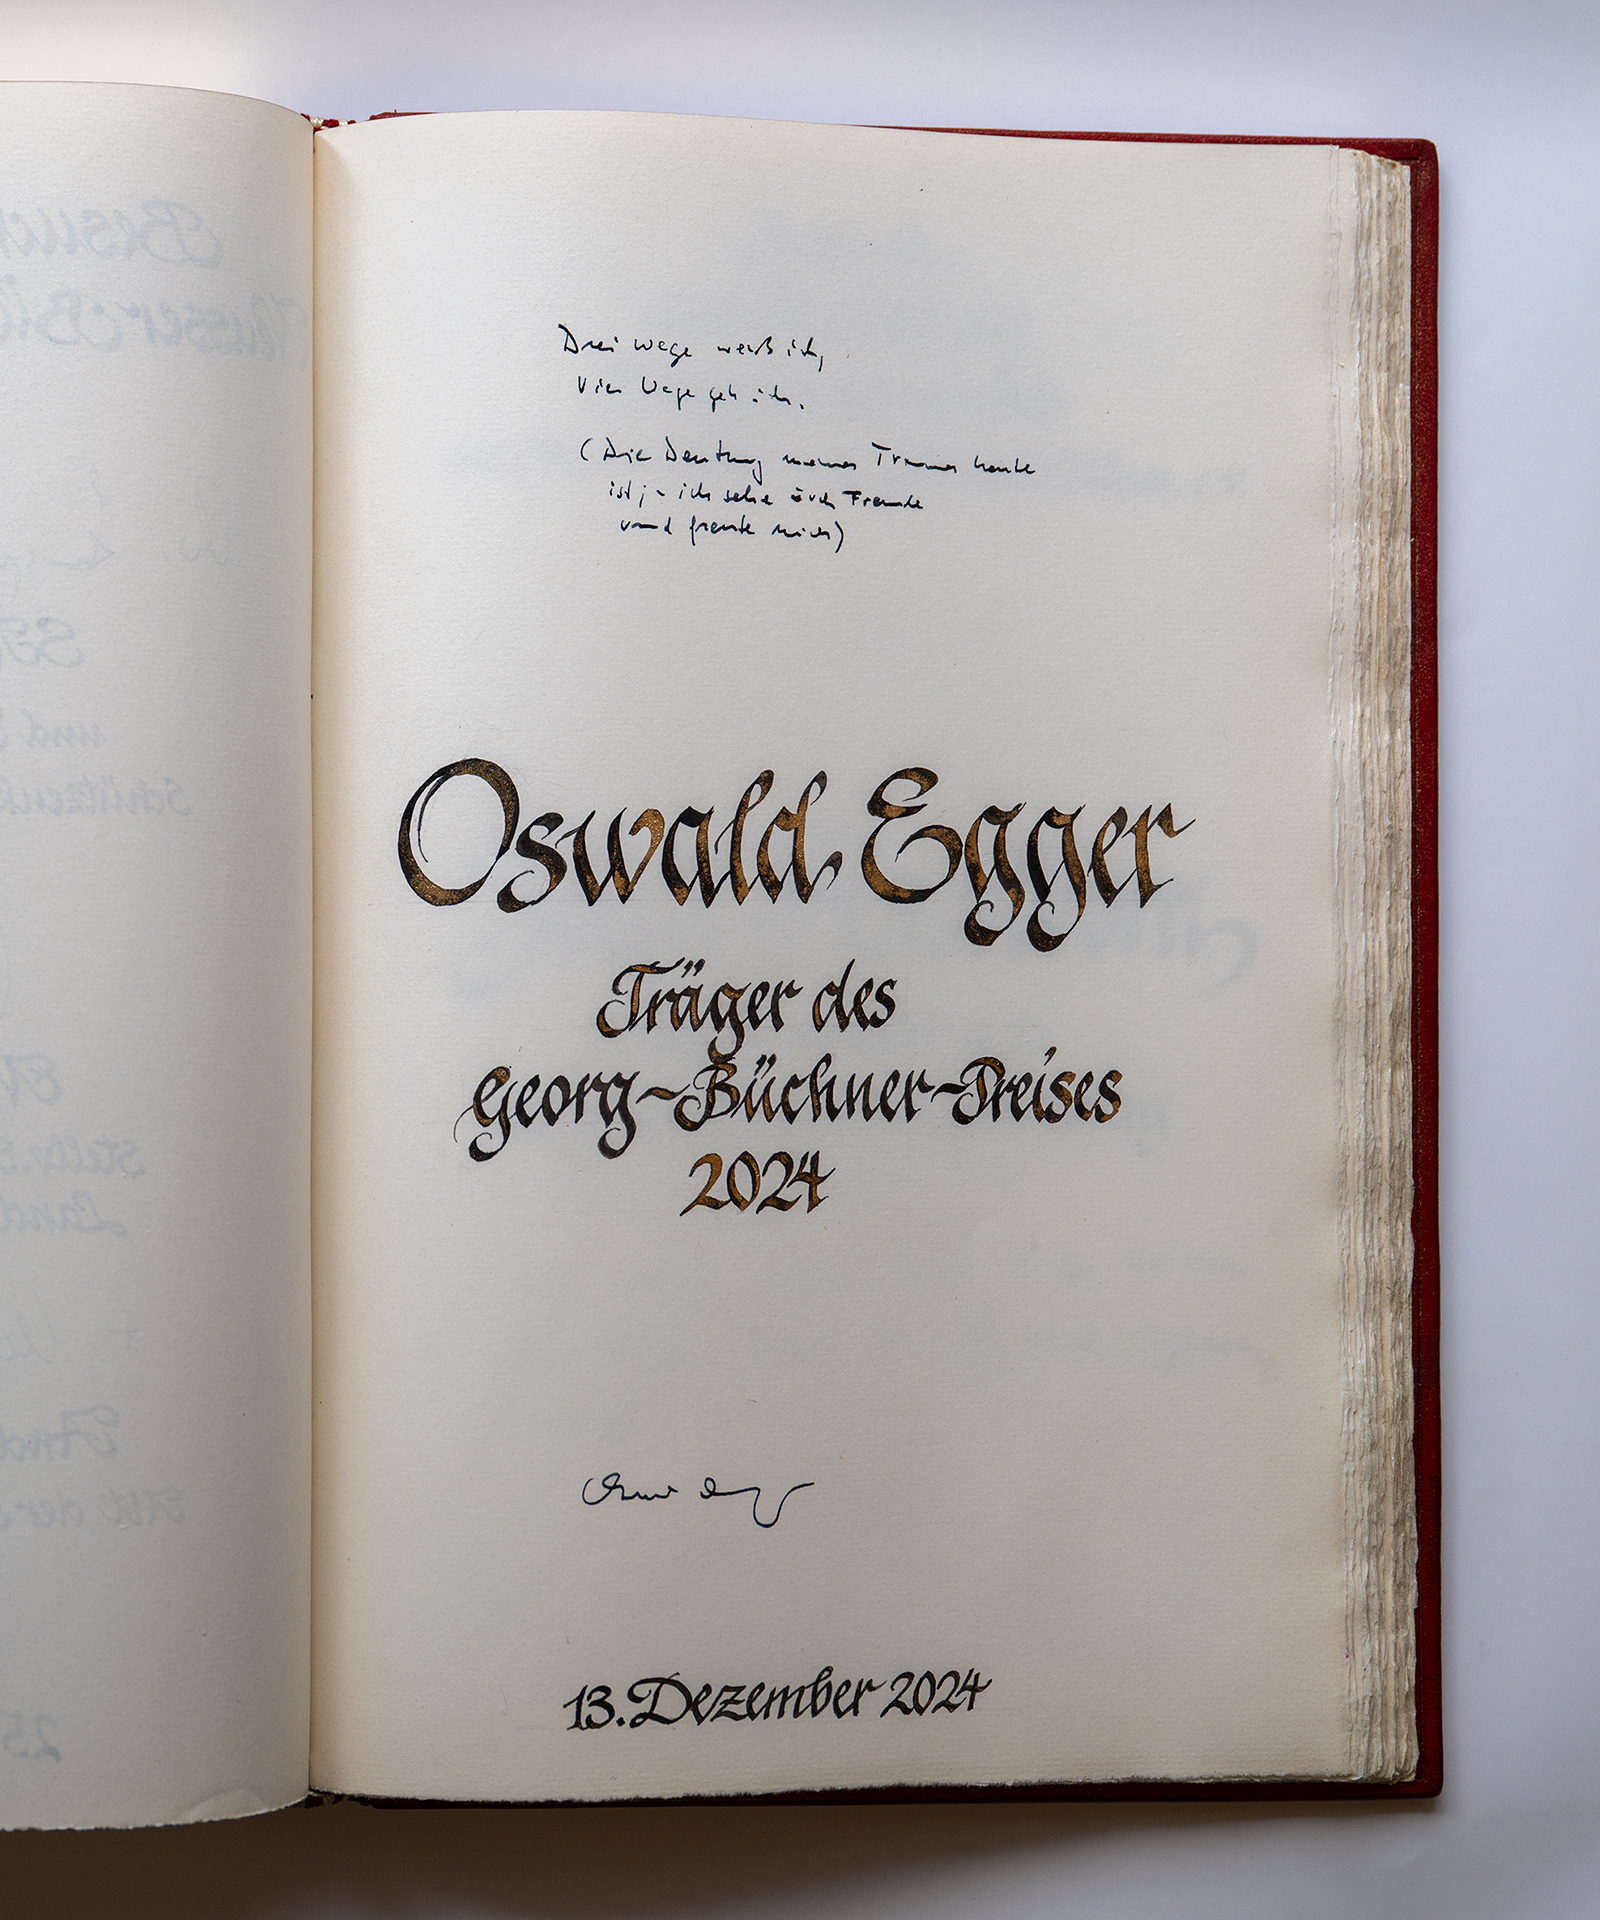 Drei Wege weiß ich,
vier Wege geh ich.
(Die Deutung meines Traumes heute
ist; - ich sehe euch Freunde
und freute mich)
Oswald Egger
Träger des
Georg-Büchner-Preises
2024
13. Dezember 2024